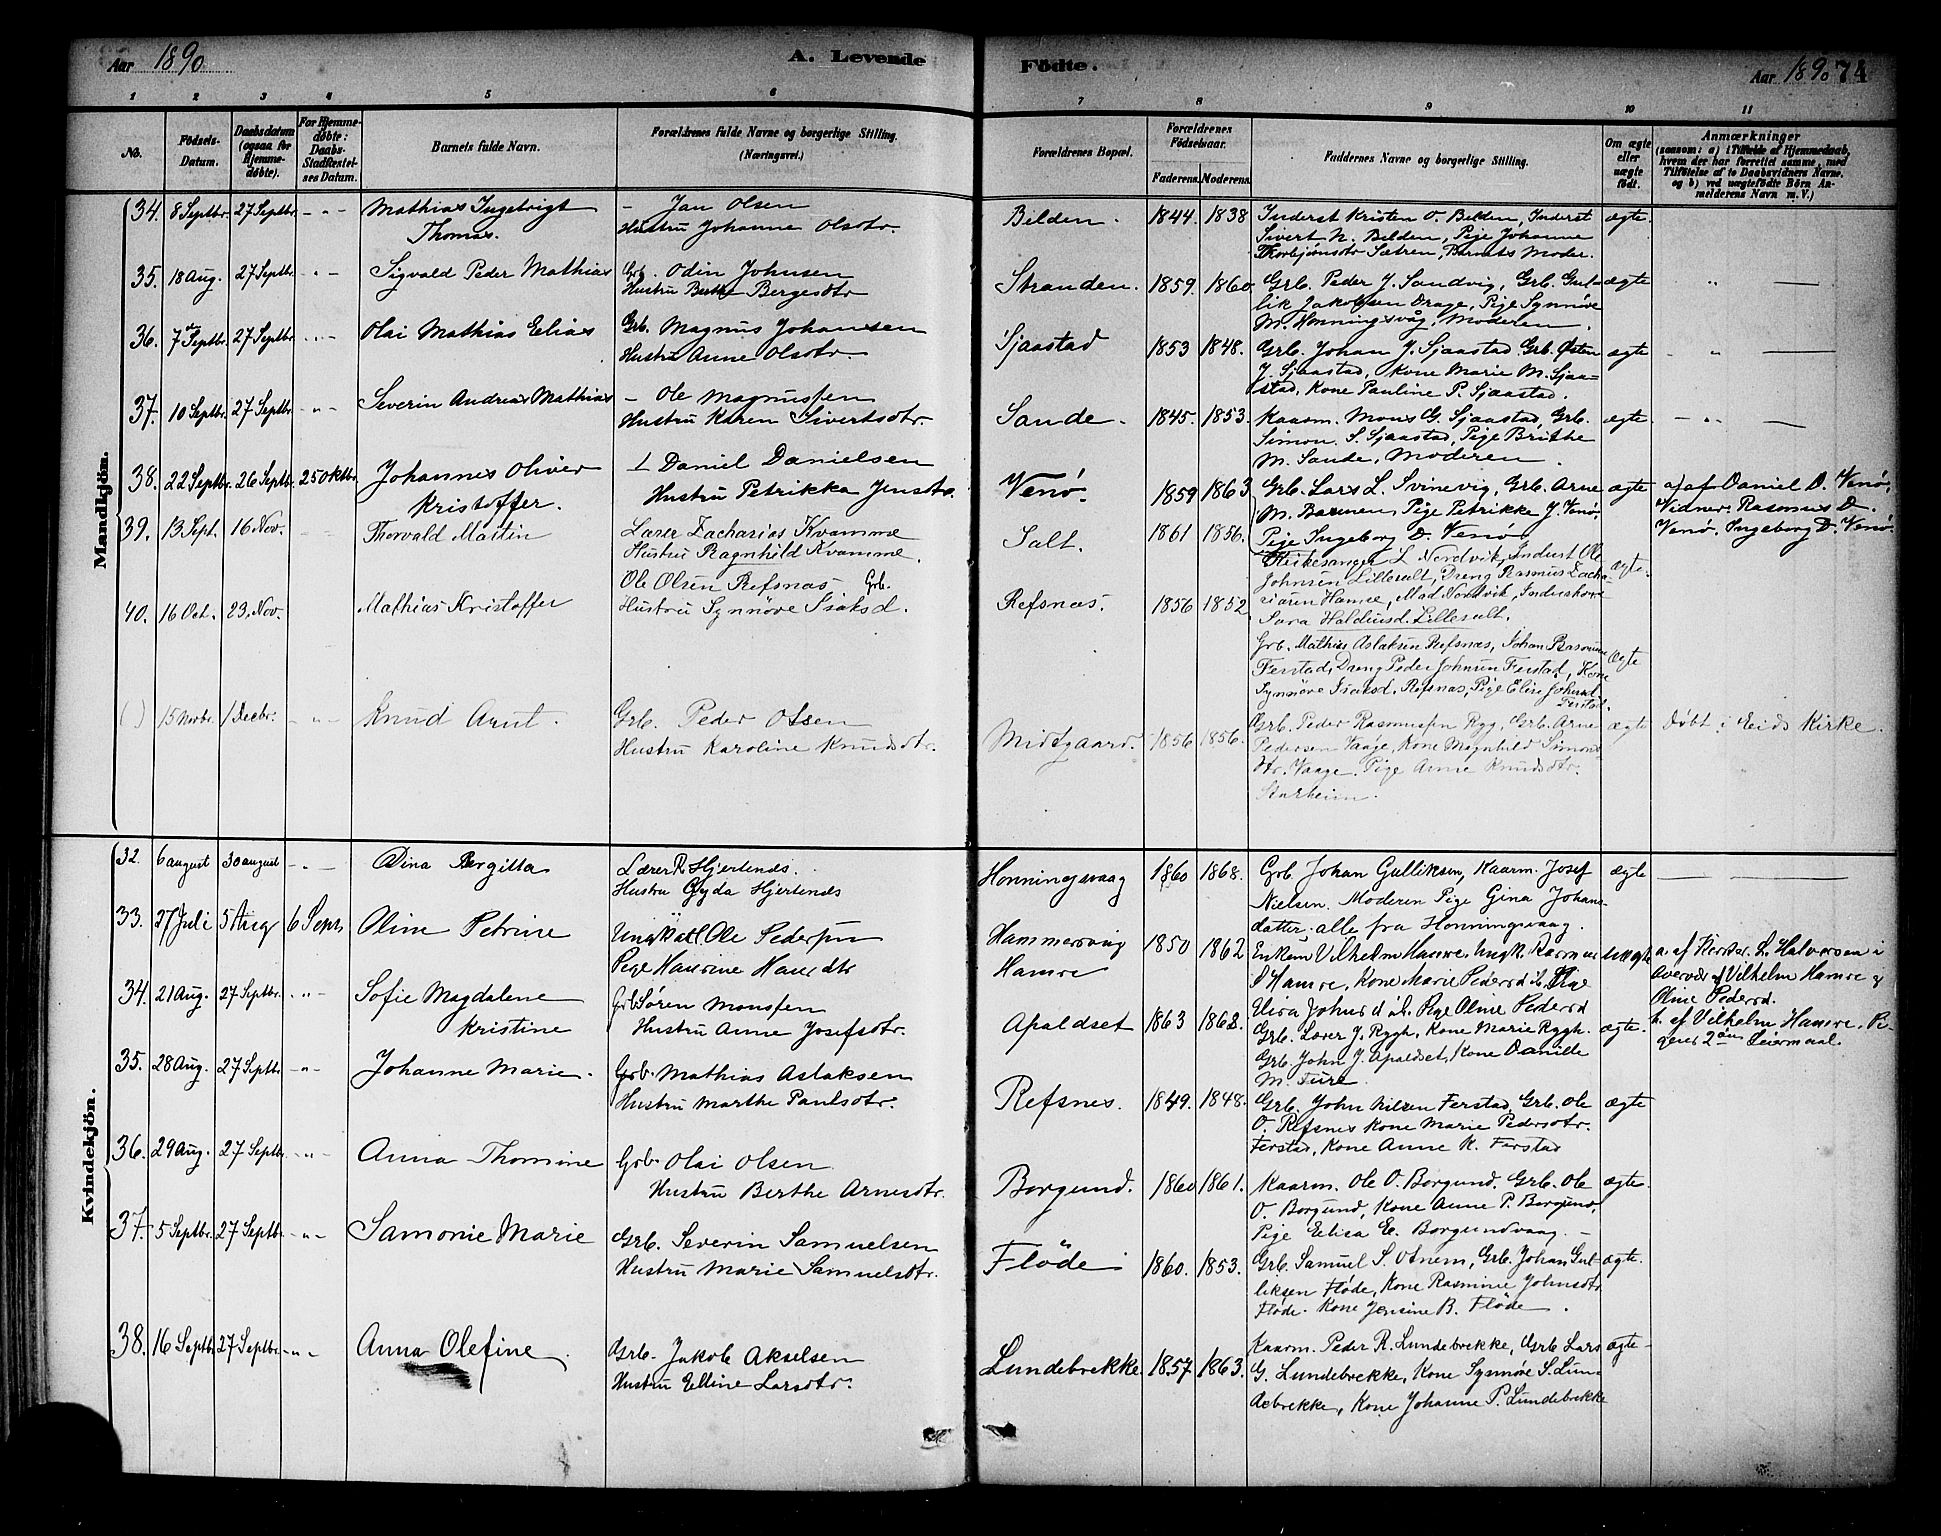 Aar 1890
A. Levende
Födte.
Aar 1890 74
1 2 3 4 5 6 7 8 9 10 11
No.
Födsels-
Datum.
Daabsdatum
(ogsaa for
Hjemme-
döbte).
For Hjemme-
döbte:
Daabs-
Stadfæstel-
ses Datum.
Barnets fulde Navn.
Forældrenes fulde Navne og borgerlige Stilling.
(Næringsvei.)
Forældrenes Bopæl.
Forældrenes
Födselsaar.
Faderens. Moderens.
Faddernes Navne og borgerlige Stilling.
Om ægte
eller
uægte
födt.
Anmærkninger
(saasom: a) i Tilfælde af Hjemmedaab,
hvem der har forrettet samme, med
Tilföielse af to Daabsvidners Navne,
og b) ved uægtefödte Börn An-
melderens Navn m. V.)
Mandkjön.
34. 8 Septbr. 27 Septbr. - " - Mathias Ingebrigt
Thomas.
- Jan Olsen
Hustru Johanne Olsdtr.
Bilden. 1844. 1838
Inderst Kristen O. Bilden, Inderst
Sivert N. Bilden, Pige Johanne
Thorbjönsdtr Sætren, Barnets Moder.
ægte.
35. 18 Aug. 27 Septbr. - " - Sigvald Peder Mathias
Grb. Odin Johnsen
Hustru Berthe Bergesdtr
Stranden. 1859. 1860.
Grb. Peder J. Sandvig, Grb. Gul-
lik Jakobsen Drage, Pige Synnöve
M. Honningsvåg, Moderen.
ægte " —
36. 7de Septbr. 27 Septbr. - " - Olai Mathias Elias
Grb. Magnus Johansen
Hustru Anne Olsdtr.
Sjaastad 1853 1848.
Grb. Johan J. Sjaastad Grb. Østen
J. Sjaastad, Kone Marie M. Sjaa-
stad, Kone Pauline P. Sjaastad.
ægte - " —
37. 10 Septbr. 27 Septbr. - " - Severin Andreas Mathias
- Ole Magnussen
Hustru Karen Sivertsdtr.
Sande. 1845. 1853.
Kaarm. Mons G. Sjaastad, Grb.
Simon S. Sjaastad, Pige Brithe
M. Sande, Moderen.
ægte - " - —
38. 22 Septbr. 26 Septbr. 25 Oktbr. Johannes Oliver
Kristoffer.
I Daniel Danielsen
Hustru Petrikka Jensdtr.
Venö. 1859 1863
Grb. Lars L. Svinevig, Grb. Arne
M. Barmen, Pige Petrikke J. Venö.
Pige Ingeborg D. Venö
ægte
a) af Daniel D. Venö,
Vidner. Rasmus D.
Venö. Ingeborg D. Venö.
39. 13 Sept. 16 Nov. Thorvald Martin
Lærer Zacharias Kvamme
Hustru Ragnhild Kvamme.
Salt. 1861 1856.
Kirkesanger L Nordvik, Inderst Ole
Johnsen Lillesalt, Dreng Rasmus Zacha-
riasen Hamre, Mad Nordvik, Inderstkone
Sara Haldiusd. Lillesalt.
ægte.
40. 16 Oct. 23. Nov. Mathias Kristoffer
Ole Olsen Refsnæs Grb.
Hustru Synnöve Isaksd.
Refsnæs. 1856 1852
Grb. Mathias Aslaksen Refsnæs, Johan Rasmussen
Ferstad, Dreng Peder Johnsen Ferstad, Kone
Synnöve Isaksd. Refsnæs, Pige Elise Johnsd.
Ferstad.
Ægte
( ) 15 Novbr. 1 Decbr. - " - Knud Arnt.
Grb. Peder Olsen
Hustru Karoline Knudsdtr.
Midtgaard. 1856 1856.
Grb. Peder Rasmussen Ryg, Grb. Arne
Pedersen Vaage, Kone Magnhild Simons-
dtr. Vaage. Pige Anne Knudsdtr.
Starheim.
ægte Döbt i Eids Kirke.
Kvindekjön.
32. 6 august 30 august - " - Dina Bergitta
Lærer R Hjertenæs.
Hustru Gyda Hjertenæs
Honningsvaag 1860 1868.
Grb Johan Gulliksen, Kaarm. Josef
Nielsen. Moderen Pige Gina Johans-
datter, alle fra Honningsvaag.
ægte — —
33. 27 Juli 5 Aug 6 Sept. Oline Petrine
Ungkarl Ole Pedersen
Pige
Hammersvig
Hamre
1850 1862
Enkem Vilhelm Hamre, Ungk. Rasmus
Hamre, Kone Marie Pedersd
Elisa Johnsd Pige Oline Pedersd
uægte
a. af L. Halvorsen i
Vilhelm Hamre &
Oline Pedersd.
b. af Vilhelm Hamre. Pi-
gens 2den Leiermaal.
34. 21 Aug. 27 Septbr. - " - Sofie Magdalene
Kristine
Grb Sören Monssen
Hustru Anne Josefsdtr.
Apaldset 1863 1868.
Grb. Laver J. Rygh, Kone Marie Rygh.
Grb. John J. Apaldset, Kone Danille
M. Fure.
ægte.
35. 28 Aug. 27 Septbr. - " - Johanne Marie.
Grb. Mathias Aslaksen
Hustru Marthe Paulsdtr.
Refsnes. 1849. 1848.
Grb. John Nilsen Ferstad, Grb. Ole
O. Refsnes Kone Marie Pedersdtr.
Ferstad, Kone Anne K. Ferstad
ægte
36. 29 Aug. 27 Septbr. - " - Anna Thomine
Grb. Olai Olsen
Hustru Berthe Arnesdtr.
Borgund. 1860 1861.
Kaarm. Ole O. Borgund. Grb. Ole
O. Borgund, Kone Anne P. Borgund,
Pige Elisa E. Borgundvaag. -
ægte.
37. 5 Septbr. 27 Septbr. - " - Samonie Marie
Grb. Severin Samuelsen
Hustru Marie Samuelsdtr.
Flöde 1860. 1853.
Grb. Samuel S. Otnem, Grb. Johan Gul-
liksen Flöde, Kone Rasmine Johnsdtr
Flöde. Kone Jensine B. Flöde.
ægte.
38. 16 Septbr. 27 Septbr. - " - Anna Olefine.
Grb. Jakob Akselsen
Hustru Elline Larsdtr.
Lundebrekke. 1857. 1863.
Kaarm. Peder R. Lundebrekke, Grb Lars
G. Lundebrekke, Kone Synnöve S. Lun-
debrekke, Kone Johanne P. Lundebrekke
ægte.